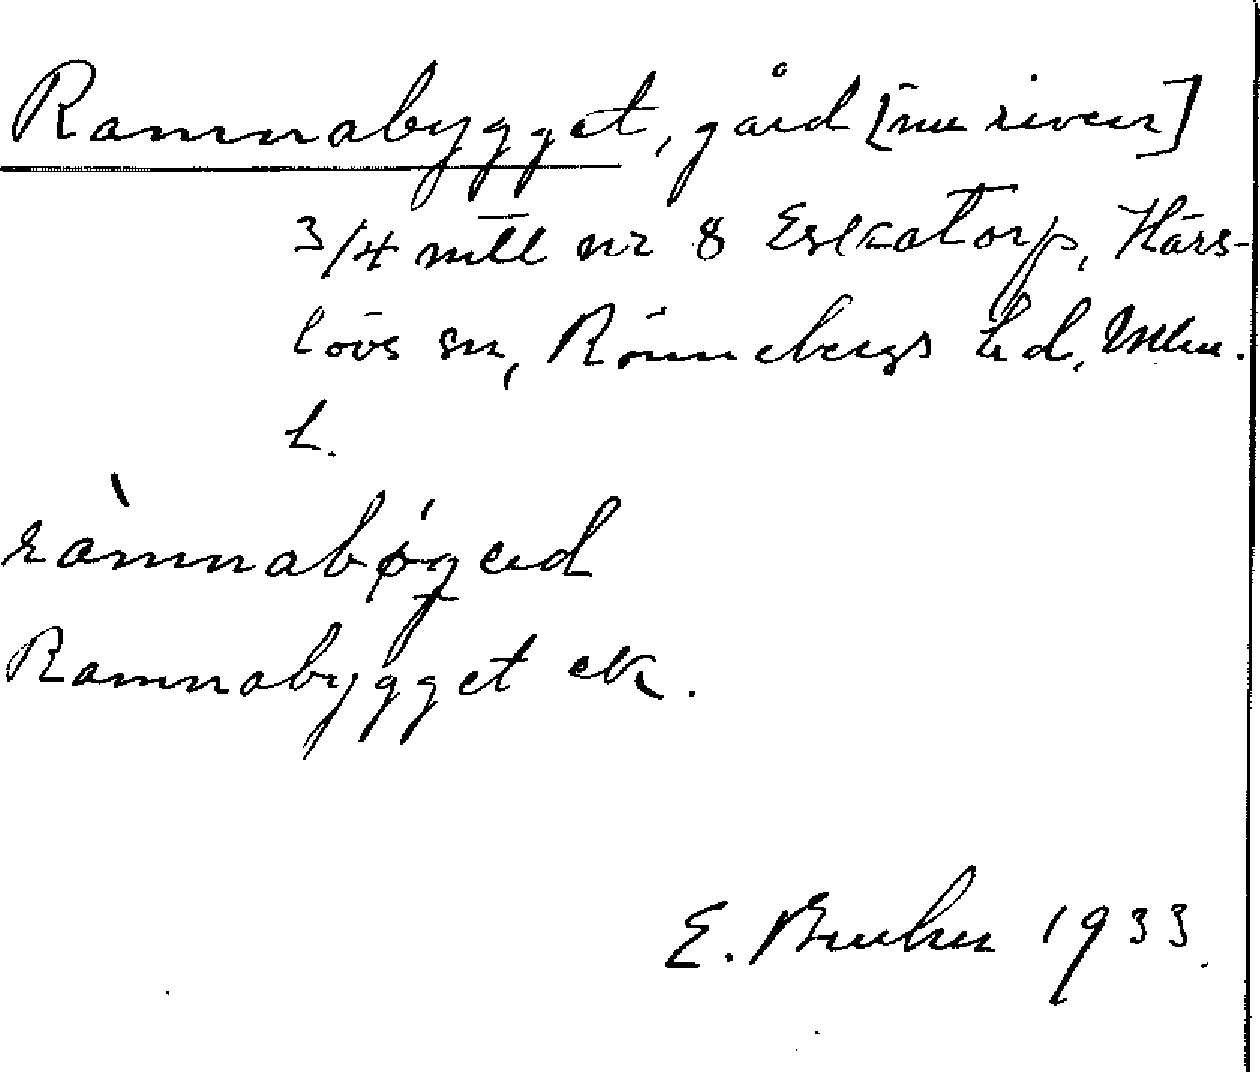 Ramnabygget, gård [nu riven]
3/4 mtl nr 8 Eskatorp, Härs-
lövs sn, Rönnebergs hd, Mlm.
L.
ràmnabø̀gəd
Ramnabygget ek.
E. 1933.